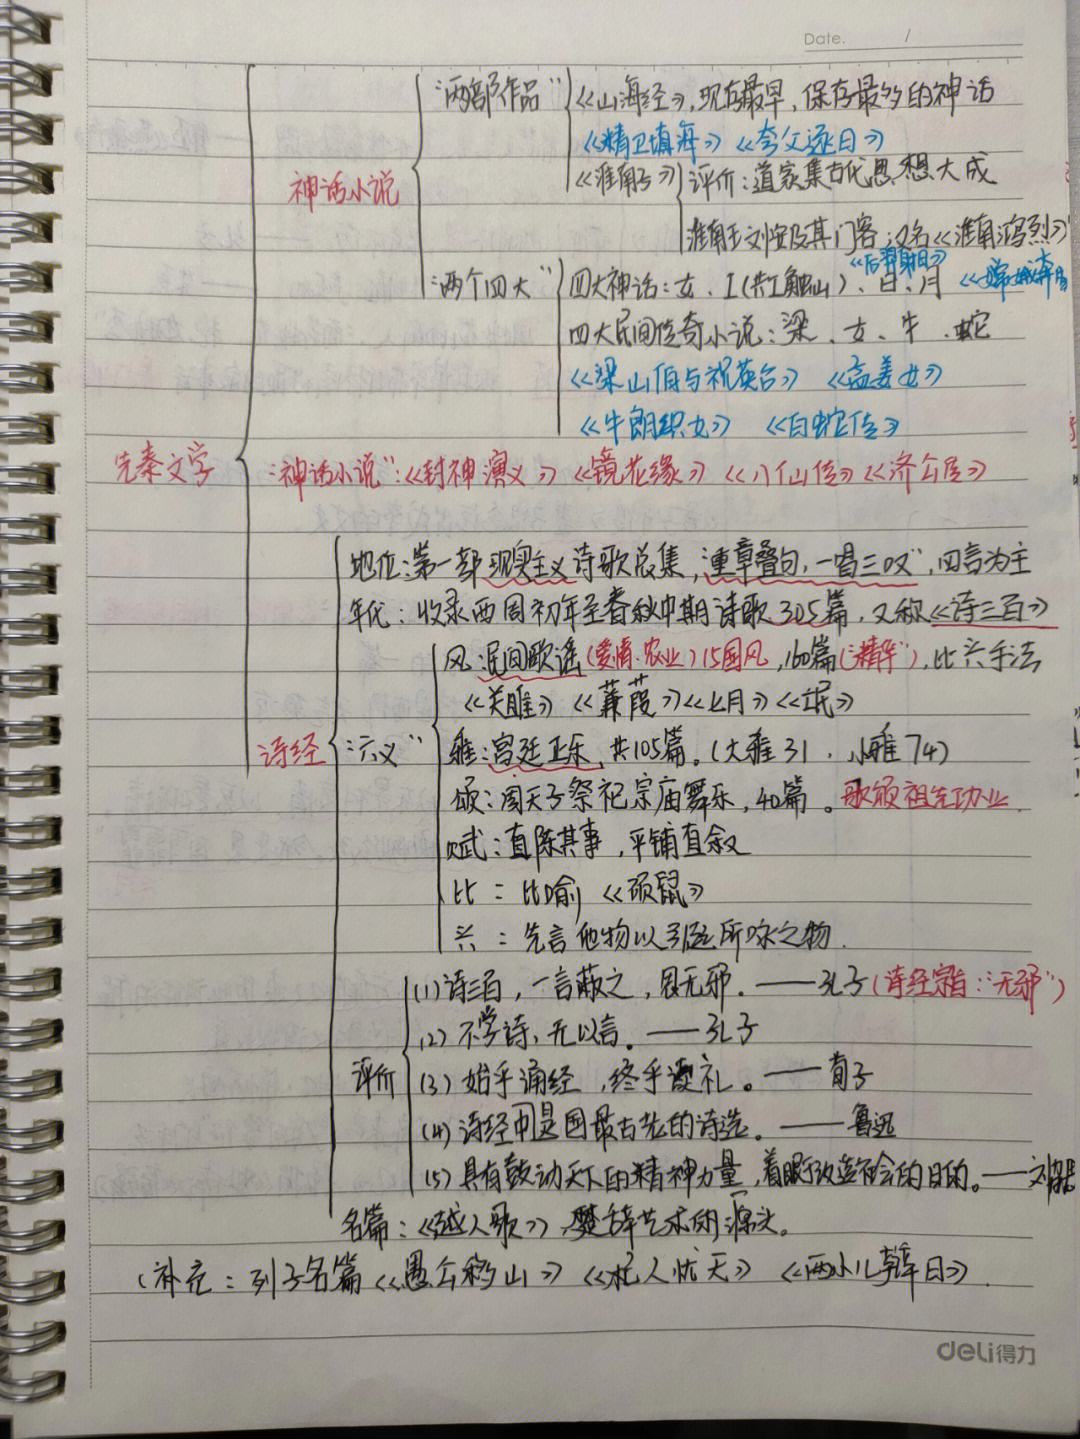 Date. /
"两部作品" 《山海经》,现存最早,保存最多的神话
《精卫填海》《夸父逐日》
神话小说
《淮南子》 评价:道家集古代思想大成
淮南王刘安及其门客,又名《淮南鸿烈》
《后羿射日》
"两个四大" 四大神话:女、工(共工触山)、日、月 《嫦娥奔月》
四大民间传奇小说:梁、女、牛、蛇
《梁山伯与祝英台》 《孟姜女》
《牛郎织女》 《白蛇传》
先秦文学 "神话小说":《封神演义》《镜花缘》《八仙传》《济公传》
地位:第一部现实主义诗歌总集,"重章叠句,一唱三叹",四言为主
年代:收录西周初年至春秋中期诗歌305篇,又称《诗三百》
风:民间歌谣(爱情.农业)15国风,160篇("精华"),比兴手法
《关雎》《蒹葭》《七月》《氓》
诗经 "六义" 雅:宫廷正乐,共105篇。(大雅31,小雅74)
颂:周天子祭祀宗庙舞乐,40篇。歌颂祖先功业
赋:直陈其事,平铺直叙
比:比喻《硕鼠》
兴:先言他物以引起所咏之物.
(1)诗三百,一言蔽之,思无邪。——孔子(诗经宗旨:"无邪")
(2)不学诗,无以言。——孔子
评价 (3)始乎诵经,终乎读礼。——荀子
(4)诗经中国最古老的诗选。——鲁迅
(5)具有鼓动天下的精神力量,着眼于改造社会的目的。——刘
名篇:《越人歌》,楚辞艺术的源头。
(补充:列子名篇《愚公移山》《杞人忧天》《两小儿辩日》.
deli得力